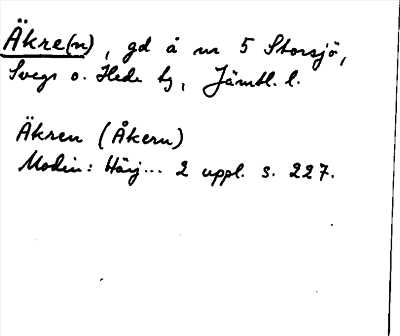 Äkre(n), gd å nr 5 Storsjö,
Svegs o. Hede tg, Jämtl. l.
Äkren (Åkern)
Modin: Härj... 2 uppl. s. 227.